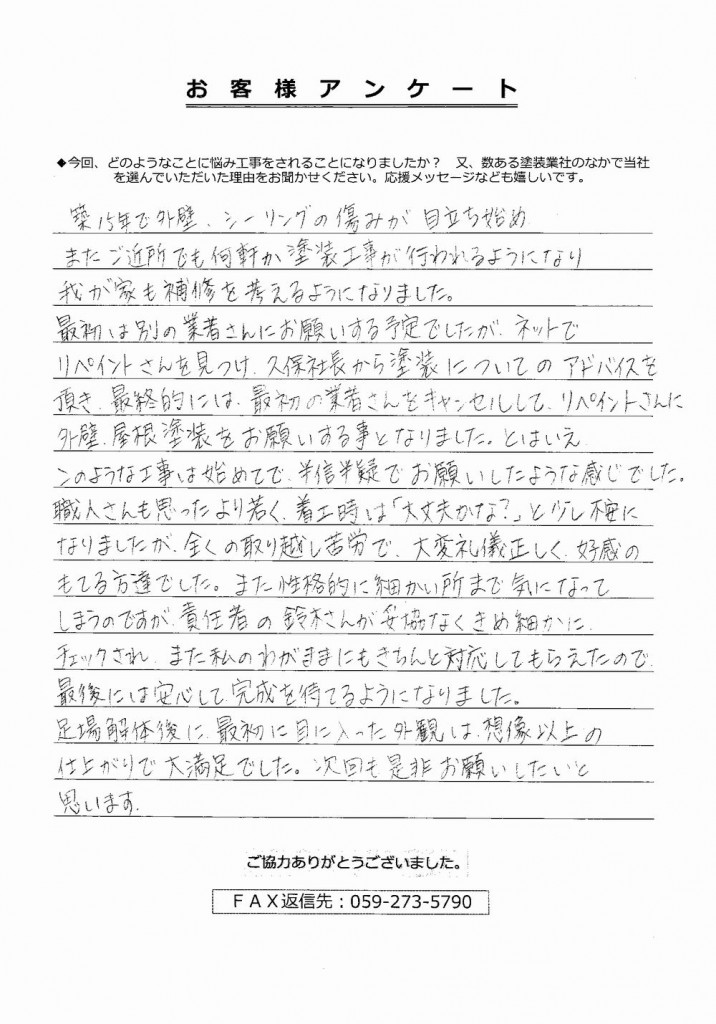 お客様アンケート
◆今回、どのようなことに悩み工事をされることになりましたか？　又、数ある塗装業社のなかで当社
を選んでいただいた理由をお聞かせください。応援メッセージなども嬉しいです。
築15年で外壁、シーリングの傷みが目立ち始め
またご近所でも何軒か塗装工事が行われるようになり
我が家も補修を考えるようになりました。
最初は別の業者さんにお願いする予定でしたが、ネットで
リペイントさんを見つけ、久保社長から塗装についてのアドバイスを
頂き、最終的には、最初の業者さんをキャンセルしして、リペイントさんに
外壁、屋根塗装をお願いする事となりました。とはいえ、
このような工事は始めてで、半信半疑でお願いしたような感じでした。
職人さんも思ったより若く、着工時は「大丈夫かな？」と少し不安に
なりましたが、全くの取り越し苦労で、大変礼儀正しく、好感の
もてる方達でした。また性格的に細かい所まで気になって
しまうのですが、責任者の鈴木さんが妥協なくきめ細かに、
チェックされ、また私のわがままにもきちんと対応してもらえたので、
最後には安心して、完成を待てるようになりました。
足場解体後に、最初に目に入った外観は、想像以上の
仕上がりで大満足でした。次回も是非お願いしたいと
思います。
ご協力ありがとうございました。
ＦＡＸ返信先：059-273-5790